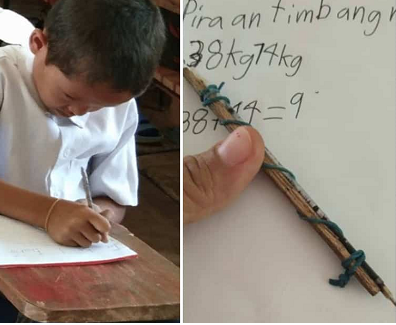 Pira an timbang
38kg74kg
38+74=9